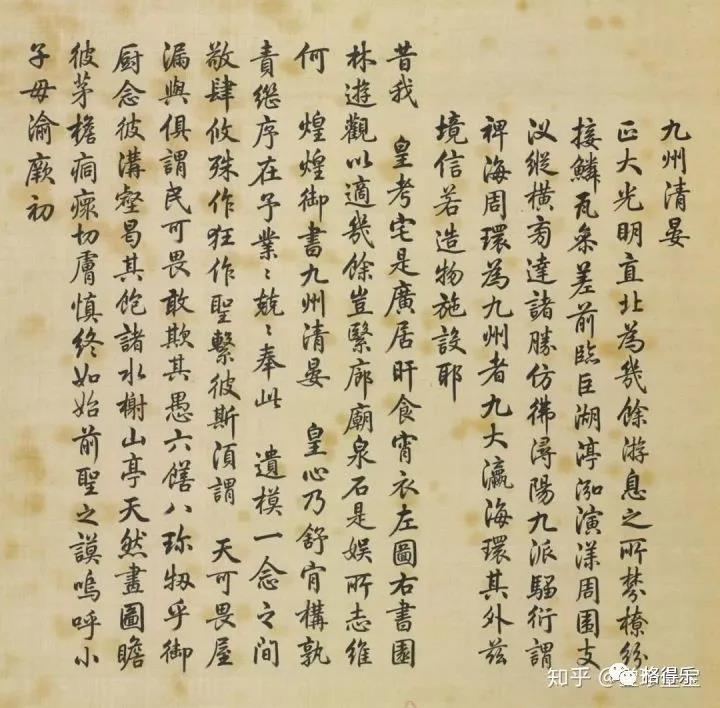 九州清晏
正大光明直北為幾餘游息之所棼橑紛
接鱗瓦參差前臨巨湖渟泓演漾周圍支
汊縱橫旁達諸勝仿彿潯陽九派騶衍謂
裨海周環為九州者九大瀛海環其外茲
境信若造物施設耶
昔我 皇考宅是廣居旰食宵衣左圖右書園
林遊觀以適幾餘豈繄廊廟泉石是娛所志維
何 煌煌御書九州清晏 皇心乃舒肯構孰
責繼序在予業〻兢〻奉此 遺模一念之間
敬肆攸殊作狂作聖繫彼斯須謂 天可畏屋
漏與俱謂民可畏敢欺其愚六饍八珍牣乎御
厨念彼溝壑曷其飽諸水榭山亭天然畫圖瞻
彼茅檐痌瘝切膚慎終如始前聖之謨嗚呼小
子毋渝厥初
知乎
格得乐